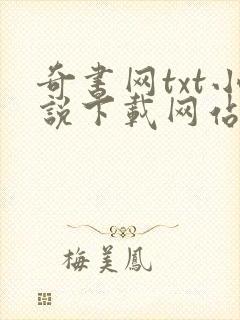 奇書网txt小
說下載网站
梅美鳳